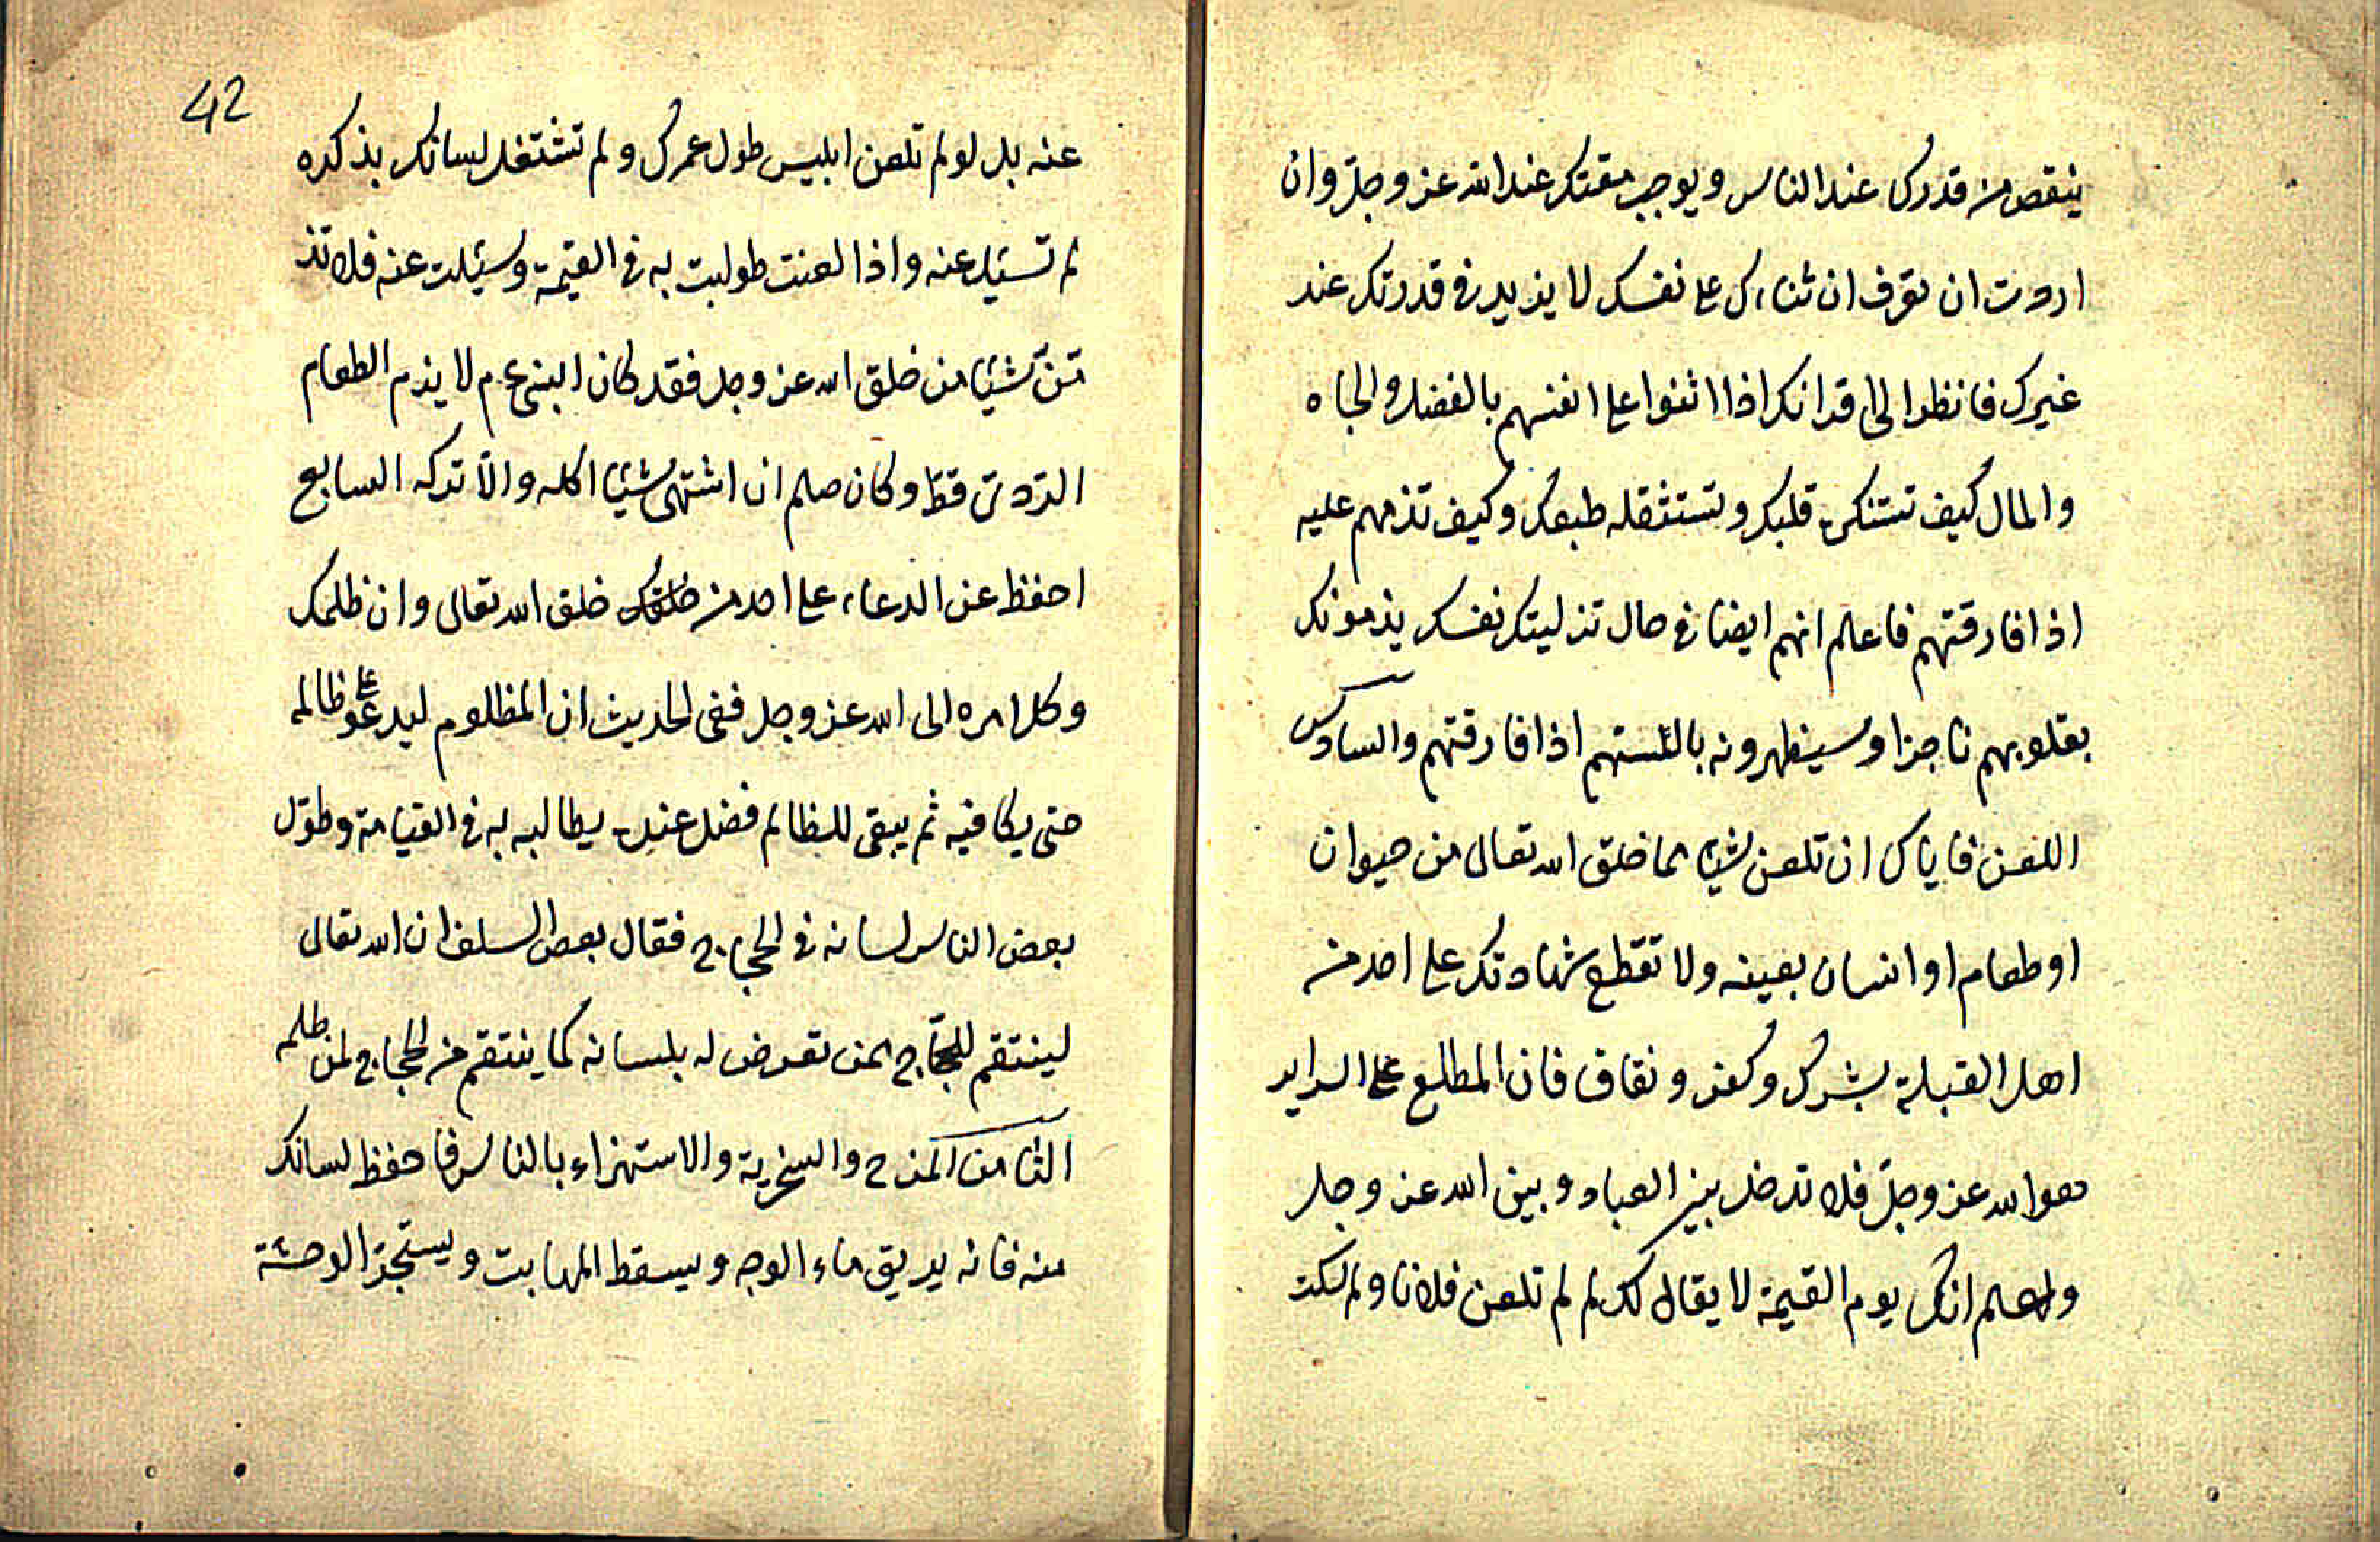 ينقص من قدرك عند الناس و يوجب مقتك عند الله عز وجل وان
اردت ان تعرف ان ثناءك على نفسك لا يزيد في قدرتك عند
غيرك فانظر الى اقرانك اذا اثنوا على انفسهم بالفضل والجاه
والمال كيف تستنكره قلبك و تستثقله طبعك وكيف تذمهم عليه
اذا فارقتهم فاعلم انهم ايضا في حال تزليتك نفسك يذمونك
بقلوبهم ناجزا وسيظهرونه بالسنتهم اذا فارقتهم والسادس
اللعن فاياك ان تلعن شيئا مما خلق الله تعالى من حيوان
او طعام او انسان بعينه ولا تقطع شهادتك على احد من
اهل القبلة بشرك وكفر و نفاق فان المطلع على السراير
هو الله عز وجل فلا تدخل بين العباد و بين الله عز وجل
واعلم انك يوم القيمة لا يقال لك لم لم تلعن فلانا ولم سكت
42
عنه بل لو لم تلعن ابليس طول عمرك و لم تشتغل لسانك بذكره
لم تسئل عنه واذا لعنت طولبت به في القيمة وسئلت عنه فلا تذ
تمن شيئا من خلق الله عز وجل فقد كان النبي عم لا يذم الطعام
الردئ قط وكان صلم ان اشتهى شيئا اكله والا تركه السابع
احفظ عن الدعاء على احد من خلقك خلق الله تعالى وان ظلمك
وكل امره الى الله عز وجل ففى الحديث ان المظلوم ليدعو على ظالمه
حتى يكافيه ثم يبقى للظالم فضل عنده يطالبه به في القيامة وطول
بعض الناس لسانه في الحجاج فقال بعض السلف ان الله تعالى
لينتقم للحجاج ممن تعرض له بلسانه كما ينتقم من الحجاج لمن ظلمه
الثامن المزح والسخرية والاستهزاء بالناس فاحفظ لسانك
منه فانه يريق ماء الوجه ويسقط المهابت ويستجر الوحشة